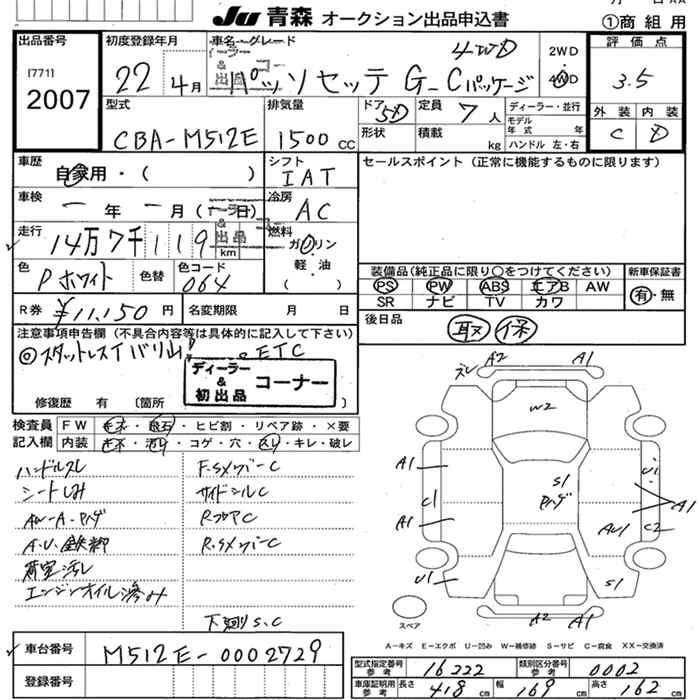 JU 青森 オークション出品申込書
①商 組 用
出品番号
[771]
2007
初度登録年月
22年4月
車名・グレード
パッソセッテ G-Cパッケージ
4WD
2WD
4WD
評価点
3.5
外装 内装
C D
型式
CBA-M512E
排気量
1500 cc
ドア 5D
形状
定員 7人
積載 kg
ディーラー・並行
モデル年式 年
ハンドル 左・右
車歴
自家用・( )
シフト
IAT
セールスポイント (正常に機能するものに限ります)
車検
一年一月(一日)
冷房
AC
走行
14万7千119 km
燃料
ガソリン
軽油
( )
色
Pホワイト
色替
色コード
064
装備品(純正品に限り○をつけてください)
PS PW ABS エアB AW
SR ナビ TV カワ
新車保証書
有・無
R券 ¥11,150円
名変期限 月 日
後日品
取 保
注意事項申告欄(不具合内容等は具体的に記入して下さい)
◎スタットレスTバリ山! ETC
ディーラー & 初出品 コーナー
修復歴 有 (箇所
検査員記入欄
FW キズ・飛石・ヒビ割・リペア跡・×要
内装 キズ・汚れ・コゲ・穴・スレ・キレ・破レ
ハンドルスレ
シートしみ
AW-A・Pハゲ
A.U.鉄粉
荷室汚レ
エンジンオイル滲み
F.SメンバーC
サイドシルC
RフロアC
R.SメンバーC
下廻りS.C
A2 A1
W2
A1
C1
A1
U1
S1
Pハゲ
U1
A1
C2
AU1
S1
A2 A1
スペア
A-キズ E-エクボ U-凹み W-補修跡 S-サビ C-腐食 XX-交換済
車台番号
M512E-0002729
登録番号
型式指定番号 参考 16322
類別区分番号 参考 0002
車庫証明用 参考 長さ 418 cm 幅 169 cm 高さ 162 cm